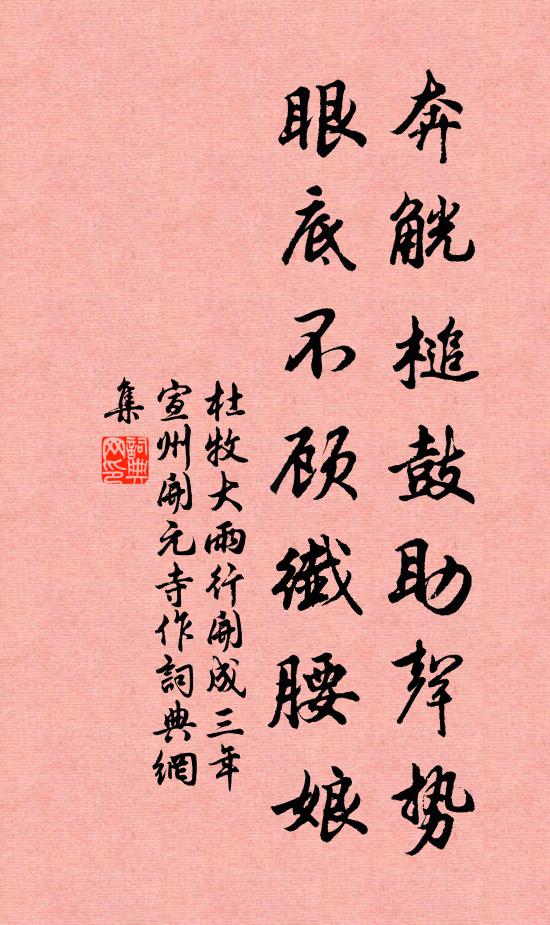 奔觥槌鼓助聲勢
眼底不顾纖腰娘
杜牧大雨行開成三年
宣州開元寺作詞典網
集
詞典
网印